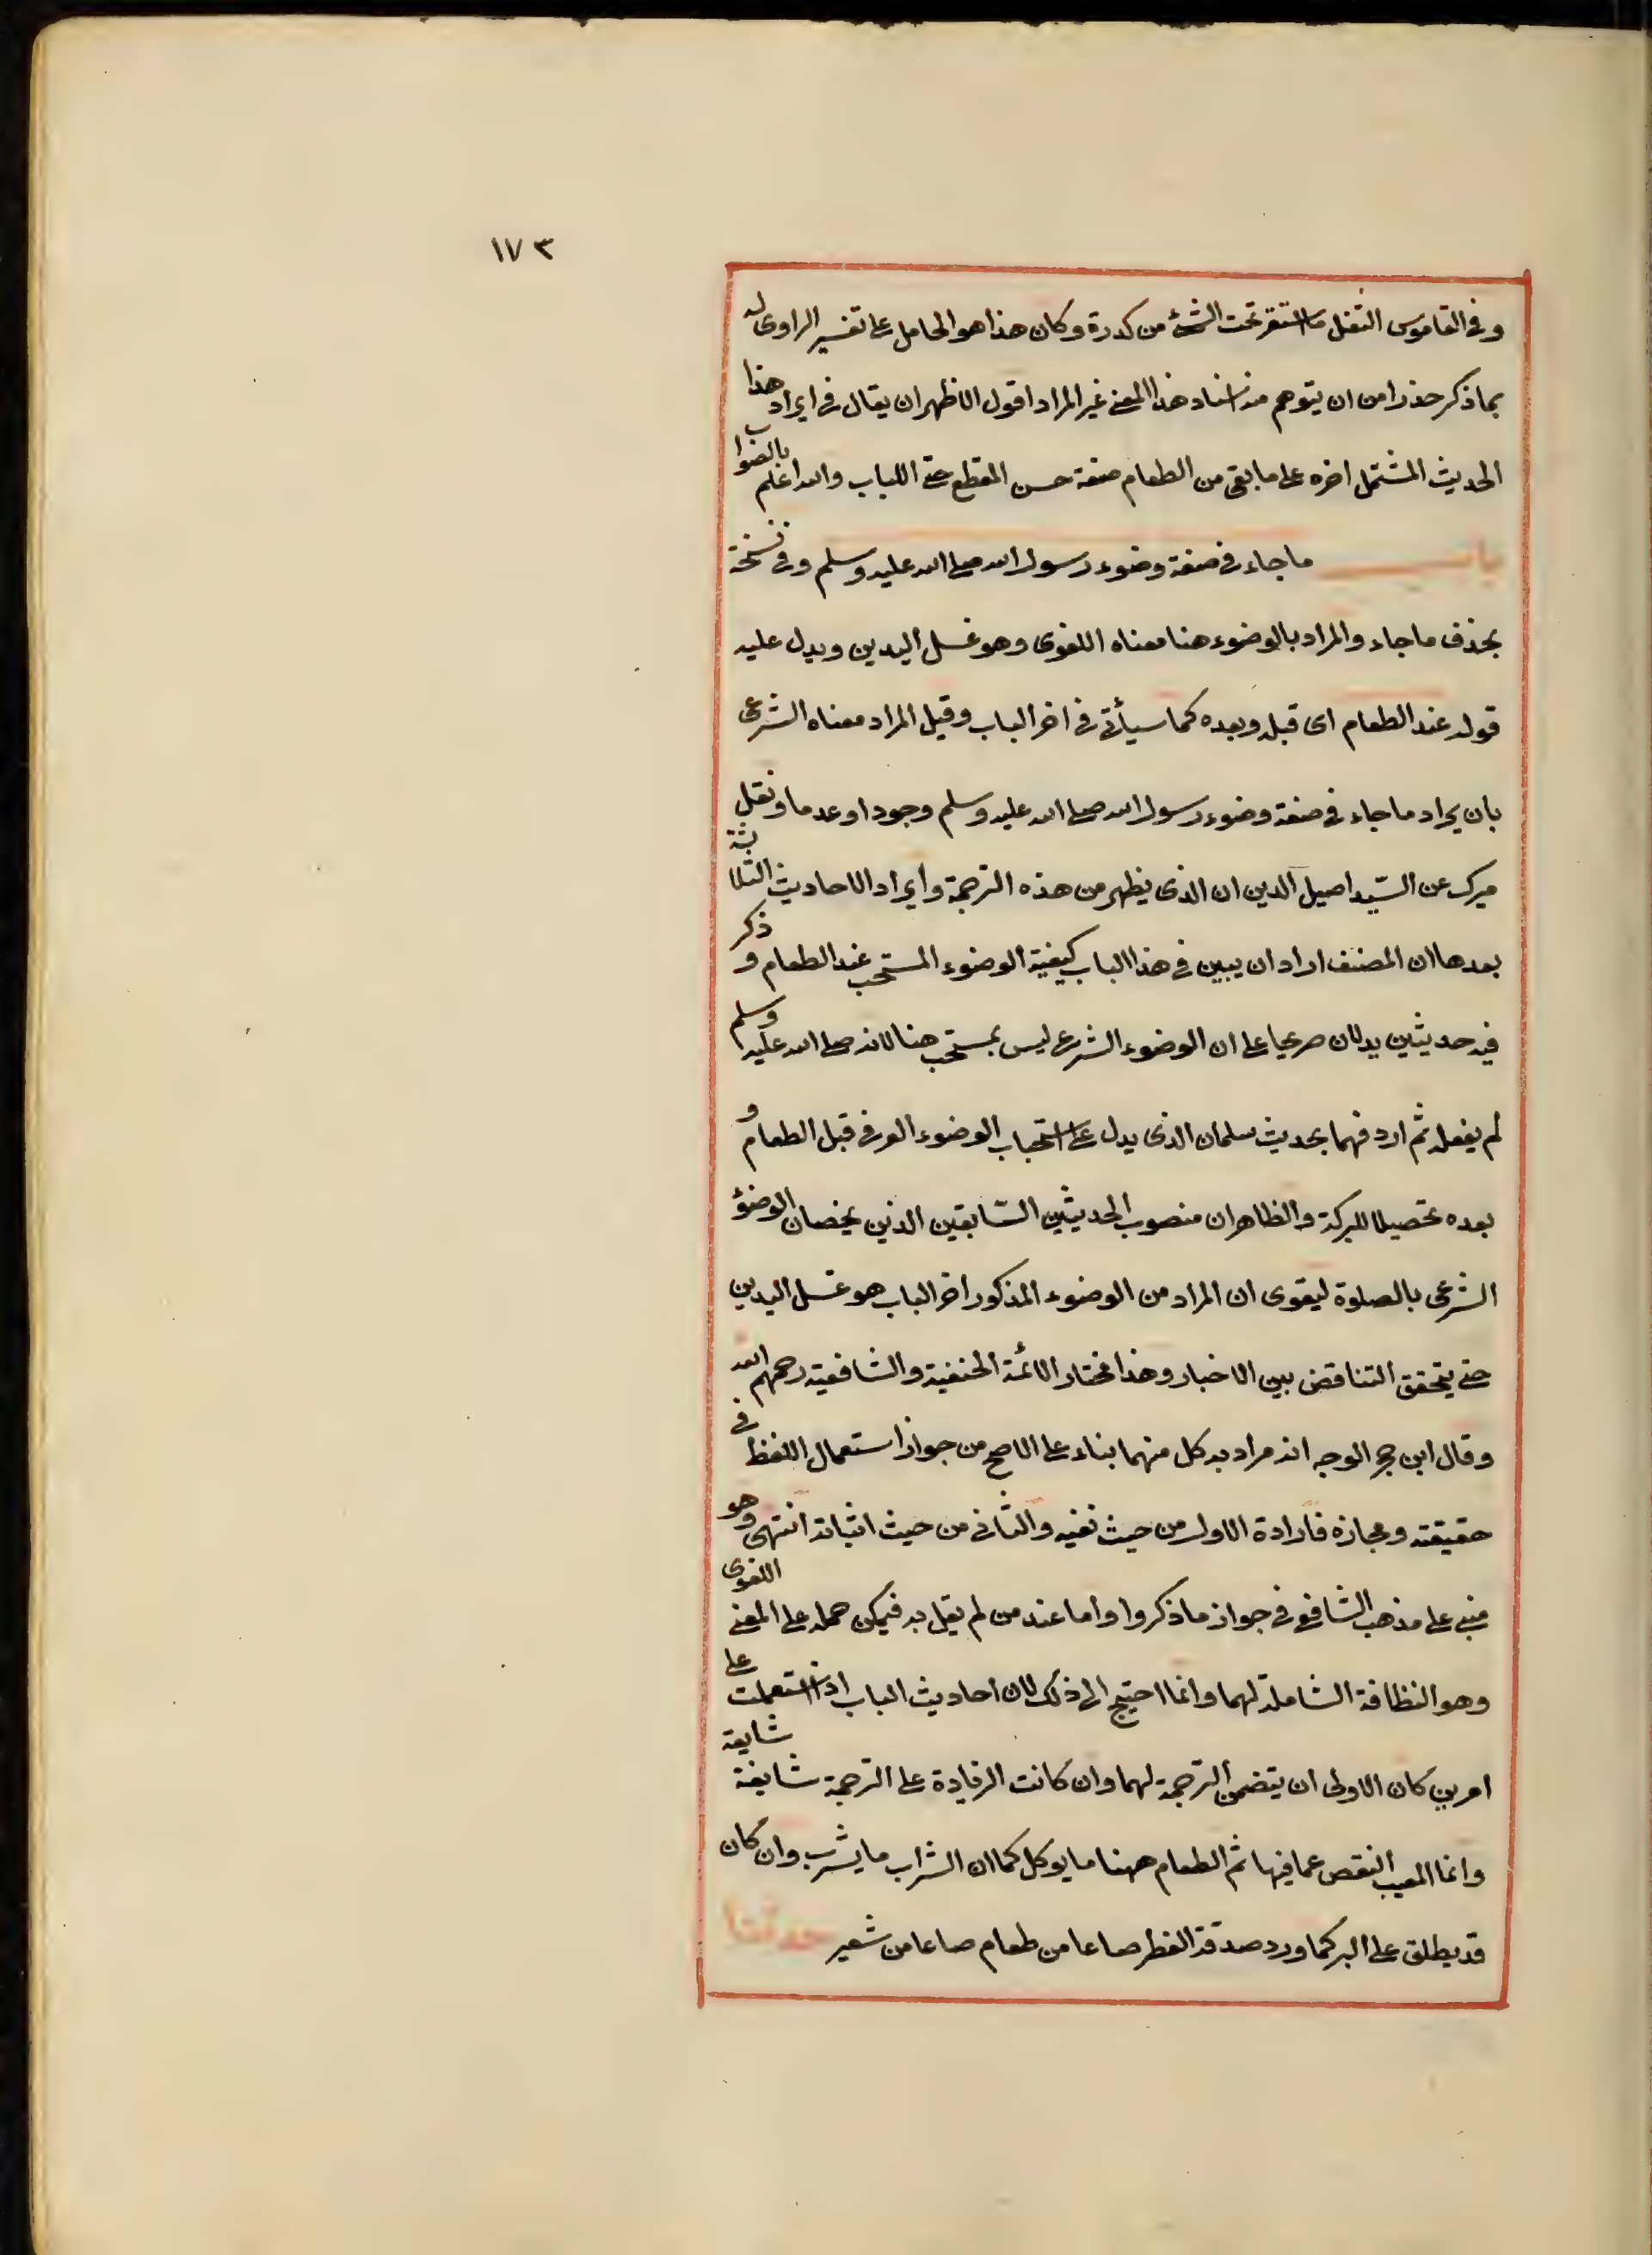 ١٧٣
وفي القاموس الثفل ما استقر تحت الشئ من كدرة وكان هذا هو الحامل على تفسير الراوى له
بما ذكر حذرا من ان يتوهم منه اسناد هذا المعنى غير المراد اقول الاظهر ان يقال في ايراد هذا
الحديث المشتمل اخره على ما بقى من الطعام صنعة حسن المقطع حتى اللباب والله اعلم بالصواب
باب ما جاء في صفة وضوء رسول الله صلى الله عليه وسلم وفي نسخة
بحذف ما جاء والمراد بالوضوء هنا معناه اللغوى وهو غسل اليدين ويدل عليه
قوله عند الطعام اى قبله وبعده كما سيأتى في اخر الباب وقيل المراد معناه الشرعى
بان يراد ما جاء في صفة وضوء رسول الله صلى الله عليه وسلم وجودا وعدما ونقل
ميرك عن السّيد اصيل الدين ان الذى يظهر من هذه الترجمة وايراد الاحاديث الثلاثة
بعدها ان المصنف اراد ان يبين في هذا الباب كيفية الوضوء المستحب عند الطعام و ذكر
فيه حديثين يدلان صريحا على ان الوضوء الشرعى ليس بمستحب هنا لانه صلى الله عليه وسلم
لم يفعله ثم اردفهما بحديث سلمان الذى يدل على استحباب الوضوء العرفى قبل الطعام و
بعده تحصيلا للبركة والظاهر ان منصوب الحديثين السّابقين الذين يخصان الوضوء
الشرعى بالصلوة ليقوى ان المراد من الوضوء المذكور اخر الباب هو غسل اليدين
حتى يتحقق التناقض بين الاخبار وهذا مختار الائمة الحنفية والشافعية رحمهم الله
وقال ابن حجر الوجه انه مراد به كل منهما بناء على الاصح من جواز استعمال اللفظ في
حقيقته ومجازه فارادة الاول من حيث نفيه والثانى من حيث اثباته انتهى وهو
مبنى على مذهب الشافعى في جواز ما ذكروا واما عند من لم يقل به فيمكن حمله على المعنى اللغوى
وهو النظافة الشاملة لهما وانما احتيج الى ذلك لان احاديث الباب اذا استعملت على
امرين كان الاولى ان يتضمن الترجمة لهما وان كانت الزيادة على الترجمة شايعة شايعة
وانما المعيب النقص عما فيها ثم الطعام ههنا ما يوكل كما ان الشراب ما يشرب وان كان
قد يطلق على البر كما ورد صدقة الفطر صاعا من طعام صاعا من شعير حدثنا